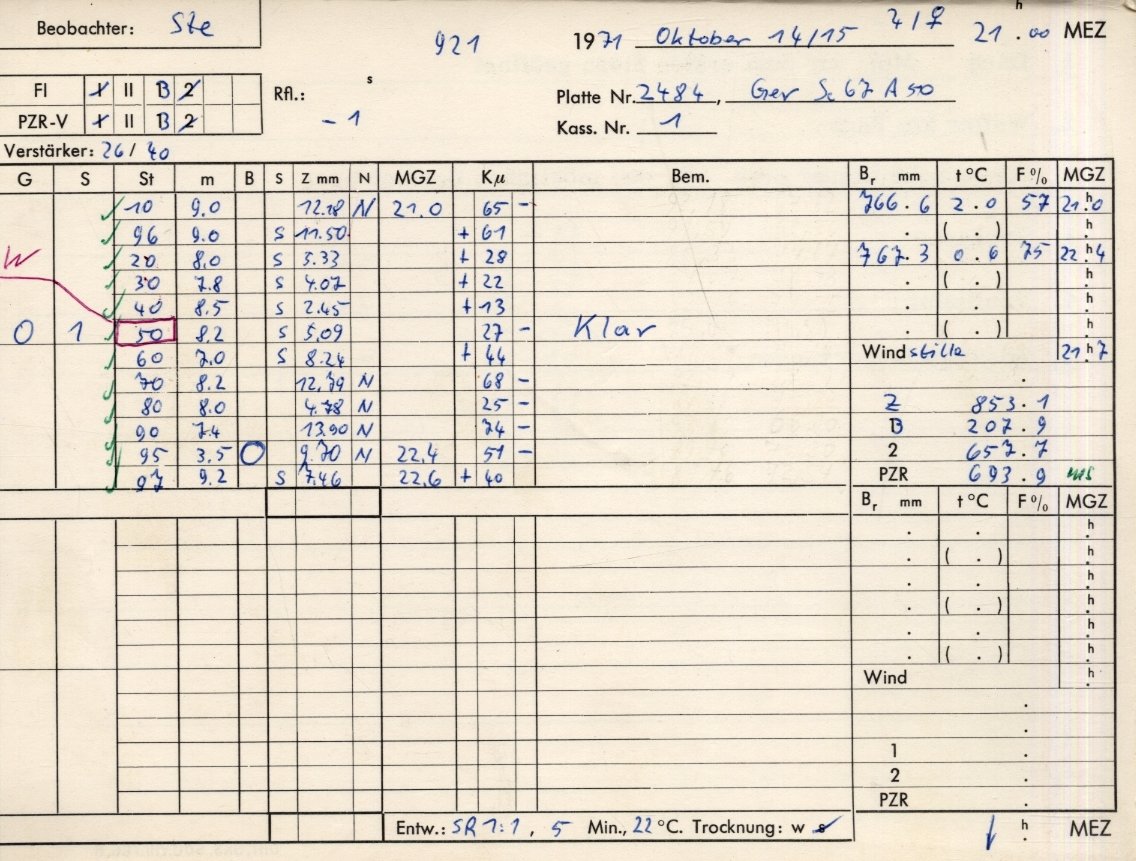 Beobachter: Ste
921 1971 Oktober 14/15 4/♀ 21.00 h MEZ
FI I II B 2 Rfl.: s
PZR-V I II B 2 - 1
Platte Nr. 2484, Ger Sc 67 A 50
Kass. Nr. 1
Verstärker: 26/40
G S St m B S Z mm N MGZ Kμ Bem. Br mm t °C F % MGZ
10 9.0 12.18 N 21.0 65 - 766.6 2.0 57 21.0 h
96 9.0 S 11.50 + 61 . ( . ) h
W 20 8.0 S 5.33 + 28 767.3 0.6 75 22.4 h
30 7.8 S 4.07 + 22 . ( . ) h
40 8.5 S 2.45 + 13 . . h
0 1 50 8.2 S 5.09 27 - Klar . ( . ) h
60 7.0 S 8.24 + 44 Windstille 21 h 7
70 8.2 12.79 N 68 - .
80 8.0 4.78 N 25 - Z 853.1
90 7.4 13.90 N 74 - B 207.9
95 3.5 O 9.70 N 22.4 51 - 2 657.7
97 9.2 S 7.46 22.6 + 40 PZR 693.9 ms
Br mm t °C F % MGZ
. . h
. ( . ) h
. . h
. ( . ) h
. . h
. ( . ) h
Wind h
.
.
1 .
2 .
PZR .
Entw.: SR 1:1, 5 Min., 22 °C. Trocknung: w s h MEZ